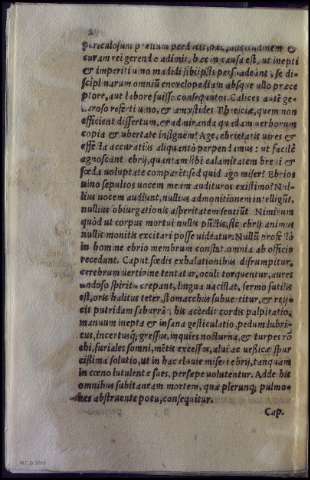 periculosum
curam rei gerendæ adimis, hæc in causa est, ut inepti
& imperiti uino madidi sibi ipsis persuadeant, se di-
sciplinarum omniũ encyclopædiam absque ullo præce
ptore, aut labore suisse consequutos. Calices aut gē-
neroso referti uino, & amystides Threiciæ, quem non
efficient disertum, & admiranda quadam uerborum
copia & ubertate insignem? Age, ebrietatis uires &
effectā accuratius aliquento perpendamus: ut facilè
agnoscant ebrij, quantam sibi calamitatem breui &
fœda uoluptate comparēt. sed quid ago miser? Ebrios
uino sepultos uocem meam audituros existimo? Nul-
lius uocem audiunt, nullius admonitionem intelligũt,
nullius obiurgationis asperitatem sentiũt. Nimirum
quod ut corpus mortui nullis pũctis, sic ebrij animus
nullis monitis excitari posse uideatur. Nullũ profectò
in homine ebrio membrum constat, omnia ab officio
recedant. Caput fœdis exhalationibus disrumpitur,
cerebrum uertigine tentatur, oculi torquentur, aures
undoso spiritu crepant, lingua uacillat, sermo futilis
est, oris halitus teter, stomachus subuertitur, & reij-
cit putridam saburrā, his accedit cordis palpitatio,
manuum inepta & insana gesticulatio, pedum lubri-
cus, incertusq́; gressus, inquies nocturna, & turpes rō
chi, feriales somni, mētis excessus, alui ac uesicæ spur
cissima solutio, ut in hac eluuie miseri ebrij, tanquam
in cœno lutulentæ sues, persæpe uolutentur. Adde his
omnibus subitaneam mortem, quæ plerunq; pulmo-
nes abstruente potu, consequitur.
Cap.